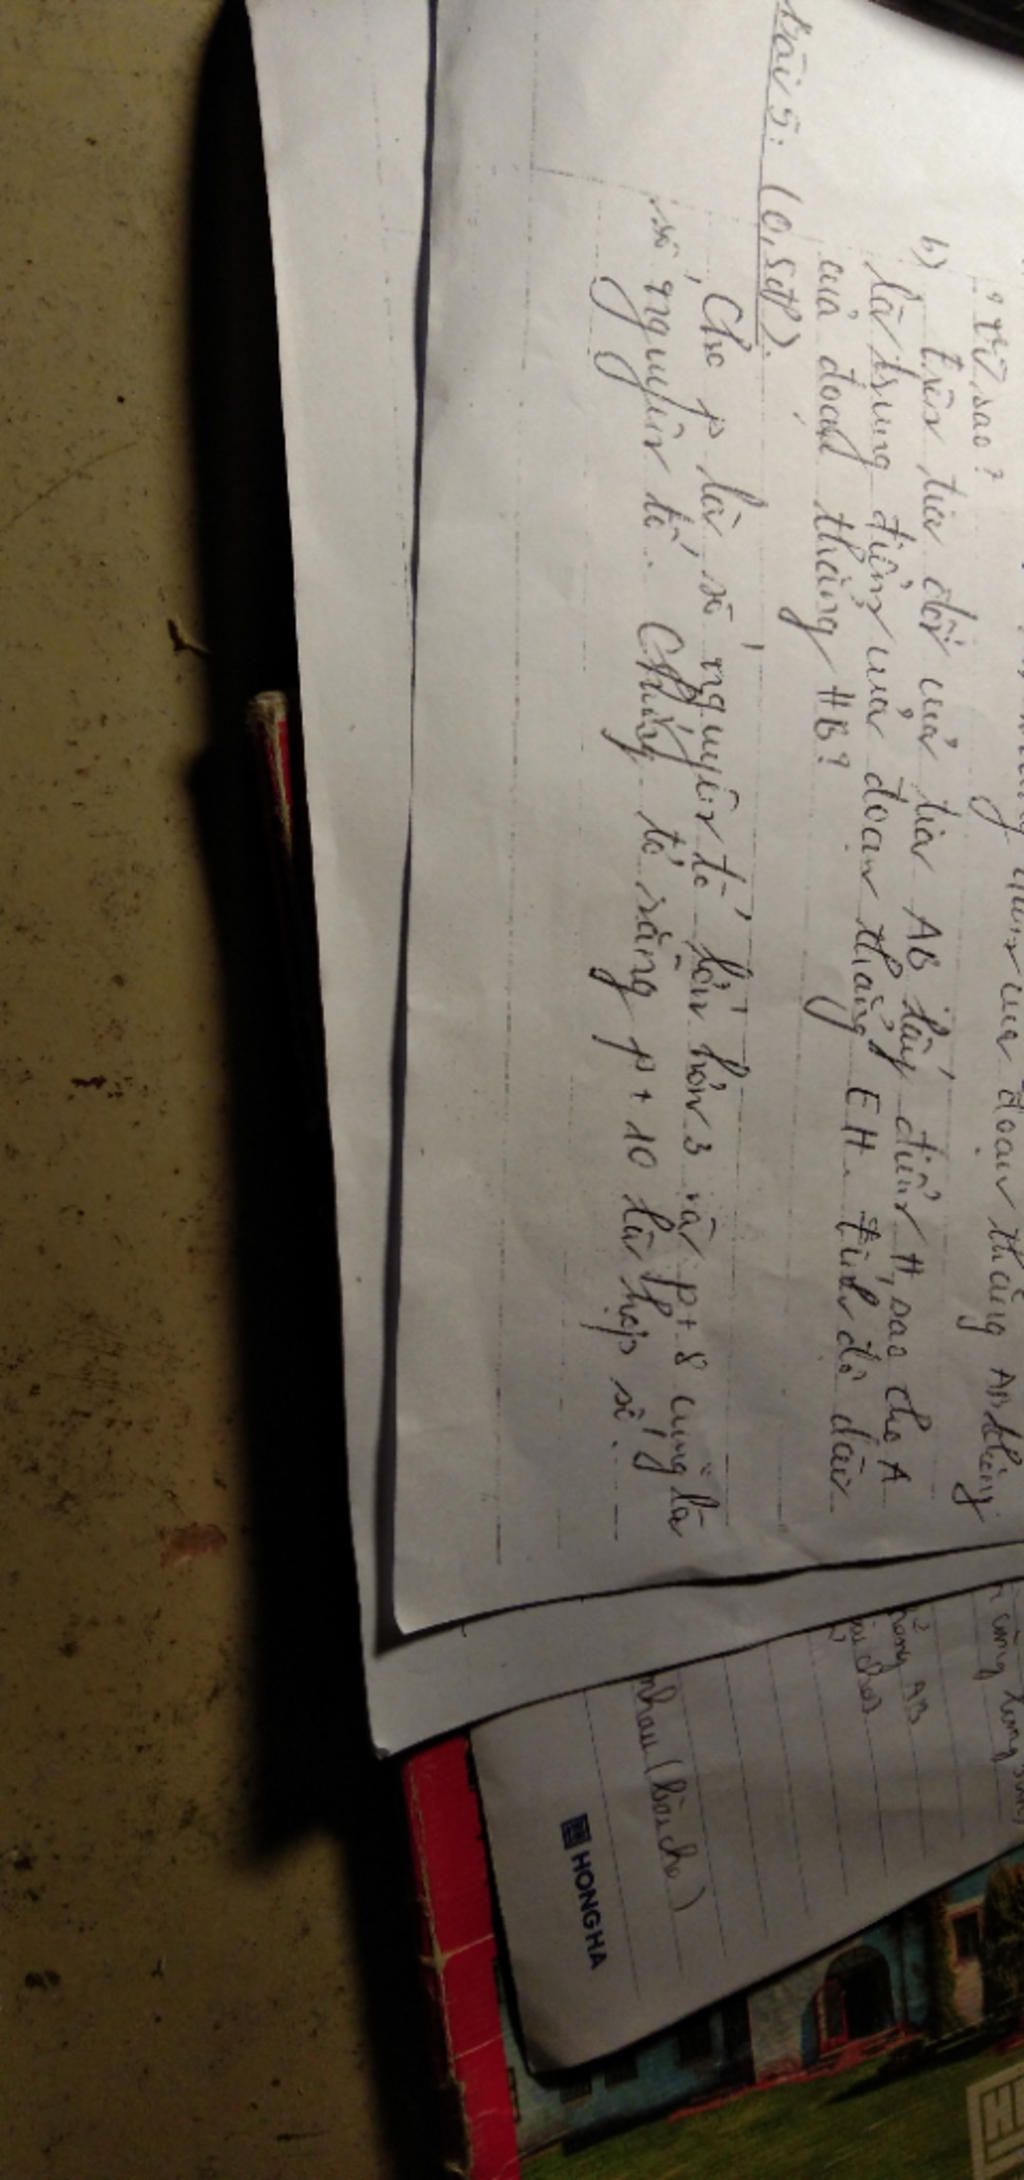 của đoạn thẳng AB không
vì sao?
b) trên tia đối của tia AB lấy điểm H, sao cho A
là trung điểm của đoạn thẳng EH. tính độ dài
của đoạn thẳng HB?
bài 5: (0,5đ).
Cho p là số nguyên tố lớn hơn 3 và p + 8 cũng là
số nguyên tố. Chứng tỏ rằng p + 10 là hợp số.
cùng
AB
nhau (bài cho)
HONG HA